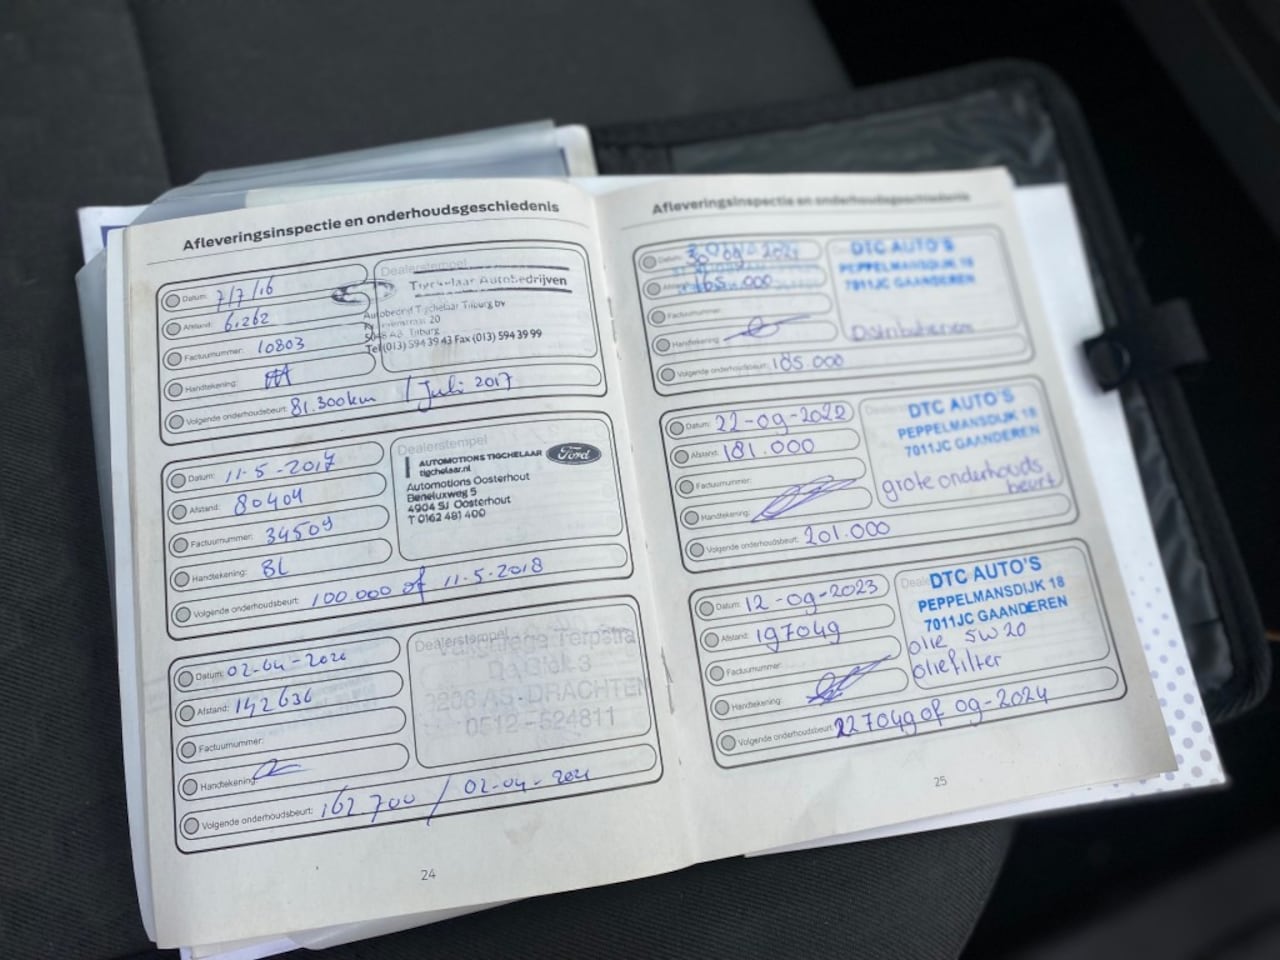 Afleveringsinspectie en onderhoudsgeschiedenis
Datum: 7/7/16
Afstand: 6.262
Factuurnummer: 10803
Handtekening:
Volgende onderhoudsbeurt: 81.300km / Juli 2017
Dealerstempel
Tigchelaar Autobedrijven
Autobedrijf Tigchelaar Tilburg bv
20
Tilburg
Tel (013) 594 39 43 Fax (013) 594 39 99
Datum: 11-5-2017
Afstand: 80404
Factuurnummer: 34509
Handtekening: BL
Volgende onderhoudsbeurt: 100.000 of 11-5-2018
Dealerstempel
AUTOMOTIONS TIGCHELAAR
tigchelaar.nl
Ford
Automotions Oosterhout
Beneluxweg 5
4904 SJ Oosterhout
T 0162 481 400
Datum: 02-04-2020
Afstand: 142636
Factuurnummer:
Handtekening:
Volgende onderhoudsbeurt: 162 700 / 02-04-2021
Dealerstempel
Vakgarage Terpstra
De Giek 3
9206 AS DRACHTEN
0512-524811
24
Afleveringsinspectie en onderhoudsgeschiedenis
Datum: 30-09-2021
Afstand: 165.000
Factuurnummer:
Handtekening:
Volgende onderhoudsbeurt: 185.000
DTC AUTO'S
PEPPELMANSDIJK 18
7011JC GAANDEREN
Distributieriem
Datum: 22-09-2022
Afstand: 181.000
Factuurnummer:
Handtekening:
Volgende onderhoudsbeurt: 201.000
DTC AUTO'S
PEPPELMANSDIJK 18
7011JC GAANDEREN
grote onderhouds
beurt
Datum: 12-09-2023
Afstand: 197049
Factuurnummer:
Handtekening:
Volgende onderhoudsbeurt: 227049 of 09-2024
DTC AUTO'S
PEPPELMANSDIJK 18
7011JC GAANDEREN
olie 5W20
oliefilter
25